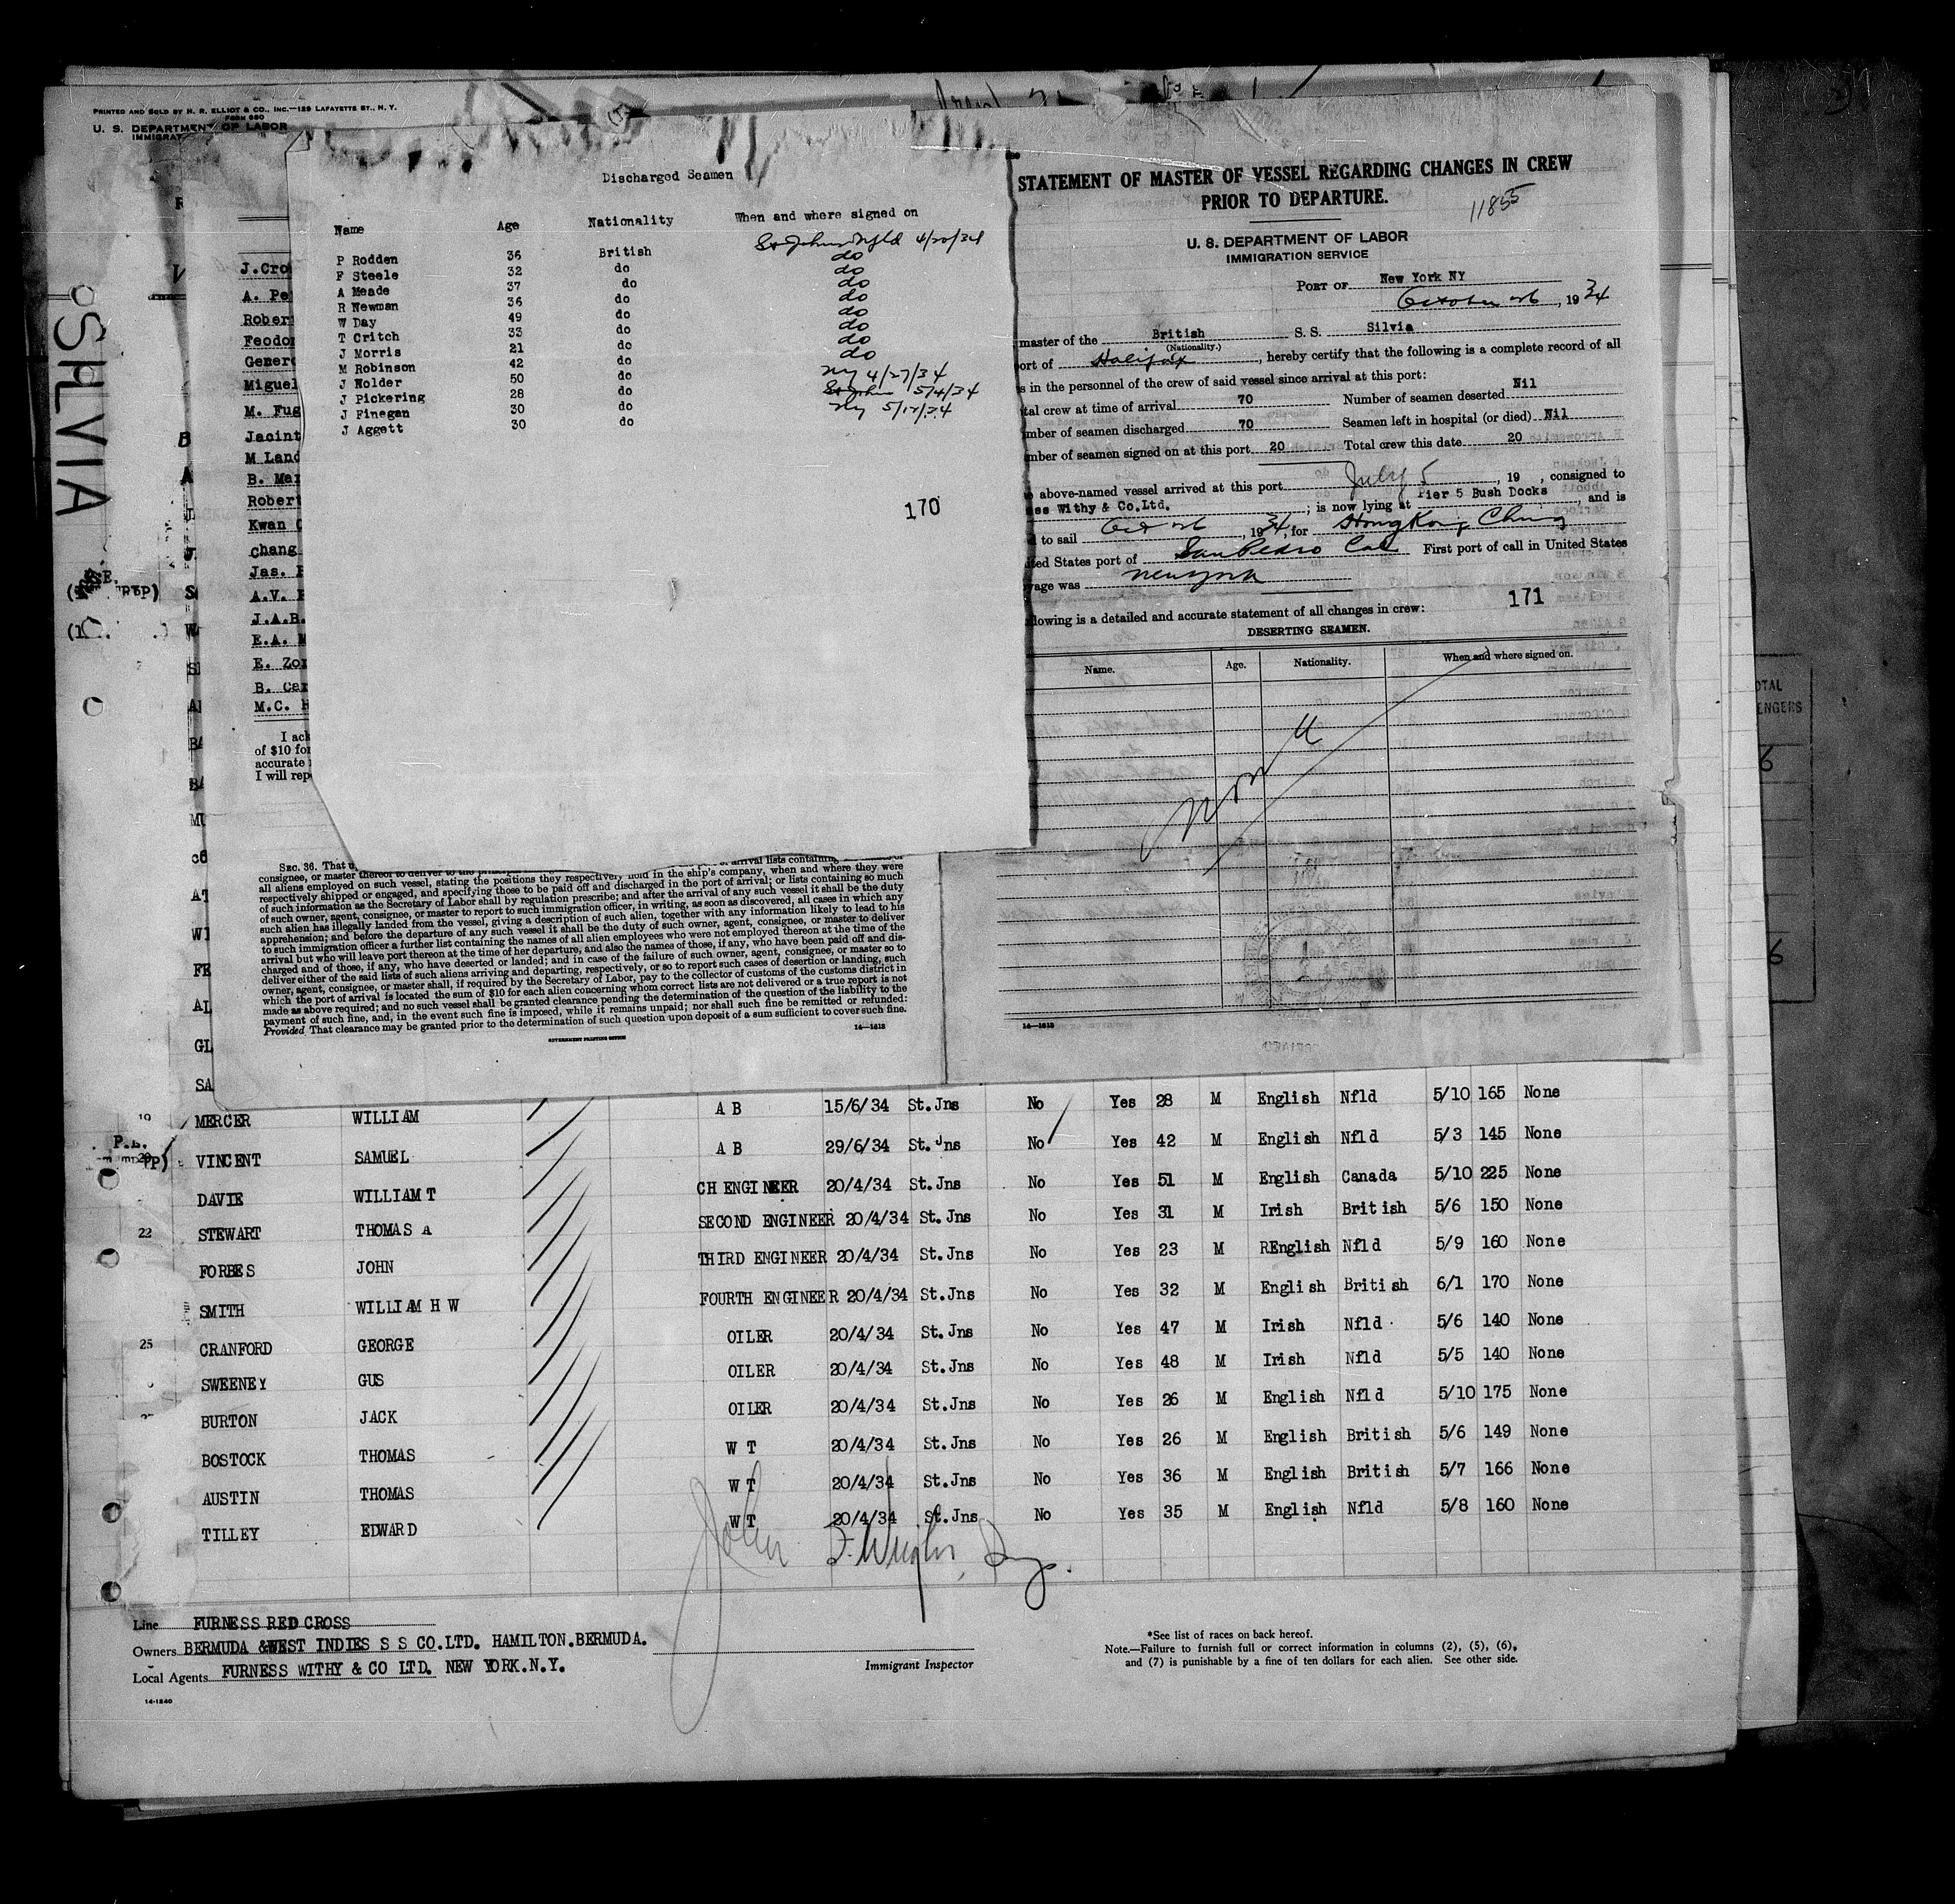 PRINTED AND SOLD BY H. R. ELLIOT & CO., INC.—129 LAFAYETTE ST., N. Y.
FORM 680
U. S. DEPARTMENT OF LABOR
IMMIGRAT
SILVIA
J.Cro
A. Pe
Rober
Feodo
Gener
Miguel
M. Fug
Jacint
M Land
B. Mar
Robert
Kwan C
Chang
Jas.
A.V.
J.A.B.
E.A. M
E. Zor
B. Car
M.C. H
I ack
of $10 for
accurate
I will rep
Discharged Seamen
Name Age Nationality When and where signed on
P Rodden 36 British St Johns Nfld 4/20/34
F Steele 32 do do
A Meade 37 do do
R Newman 36 do do
W Day 49 do do
T Critch 33 do do
J Morris 21 do do
M Robinson 42 do do
J Nolder 50 do ny 4/27/34
J Pickering 28 do St John 5/4/34
J Finegan 30 do ny 5/12/34
J Aggett 30 do
170
STATEMENT OF MASTER OF VESSEL REGARDING CHANGES IN CREW
PRIOR TO DEPARTURE.
11855
U. S. DEPARTMENT OF LABOR
IMMIGRATION SERVICE
PORT OF New York NY
October 26, 1934
master of the British S. S. Silvia
(Nationality.)
ort of Halifax, hereby certify that the following is a complete record of all
s in the personnel of the crew of said vessel since arrival at this port:
tal crew at time of arrival 70 Number of seamen deserted Nil
mber of seamen discharged 70 Seamen left in hospital (or died) Nil
mber of seamen signed on at this port 20 Total crew this date 20
above-named vessel arrived at this port July 5, 19 , consigned to
ess Withy & Co.Ltd. ; is now lying at Pier 5 Bush Docks and is
d to sail Oct 26, 1934, for Hong Kong China
ited States port of San Pedro Cal First port of call in United States
yage was New York
171
llowing is a detailed and accurate statement of all changes in crew:
DESERTING SEAMEN.
Name. Age. Nationality. When and where signed on.
SEC. 36. That u arrival lists containing
consignee, or master thereto to deliver to the hold in the ship's company, when and where they were
all aliens employed on such vessel, stating the positions they respectively
respectively shipped or engaged, and specifying those to be paid off and discharged in the port of arrival; or lists containing so much
of such information as the Secretary of Labor shall by regulation prescribe; and after the arrival of any such vessel it shall be the duty
of such owner, agent, consignee, or master to report to such immigration officer, in writing, as soon as discovered, all cases in which any
such alien has illegally landed from the vessel, giving a description of such alien, together with any information likely to lead to his
apprehension; and before the departure of any such vessel it shall be the duty of such owner, agent, consignee, or master to deliver
to such immigration officer a further list containing the names of all alien employees who were not employed thereon at the time of the
arrival but who will leave port thereon at the time of her departure, and also the names of those, if any, who have been paid off and dis-
charged and of those, if any, who have deserted or landed; and in case of the failure of such owner, agent, consignee, or master so to
deliver either of the said lists of such aliens arriving and departing, respectively, or so to report such cases of desertion or landing, such
owner, agent, consignee, or master shall, if required by the Secretary of Labor, pay to the collector of customs of the customs district in
which the port of arrival is located the sum of $10 for each alien concerning whom correct lists are not delivered or a true report is not
made as above required; and no such vessel shall be granted clearance pending the determination of the question of the liability to the
payment of such fine, and, in the event such fine is imposed, while it remains unpaid; nor shall such fine be remitted or refunded:
Provided That clearance may be granted prior to the determination of such question upon deposit of a sum sufficient to cover such fine.
14—1613
GOVERNMENT PRINTING OFFICE
14—1613
MERCER WILLIAM A B 15/6/34 St.Jns No Yes 28 M English Nfld 5/10 165 None
VINCENT SAMUEL A B 29/6/34 St.Jns No Yes 42 M English Nfld 5/3 145 None
DAVIE WILLIAM T CH ENGINEER 20/4/34 St.Jns No Yes 51 M English Canada 5/10 225 None
22 STEWART THOMAS A SECOND ENGINEER 20/4/34 St.Jns No Yes 31 M Irish British 5/6 150 None
FORBES JOHN THIRD ENGINEER 20/4/34 St.Jns No Yes 23 M REnglish Nfld 5/9 160 None
SMITH WILLIAM H W FOURTH ENGINEER 20/4/34 St.Jns No Yes 32 M English British 6/1 170 None
25 CRANFORD GEORGE OILER 20/4/34 St.Jns No Yes 47 M Irish Nfld 5/6 140 None
SWEENEY GUS OILER 20/4/34 St.Jns No Yes 48 M Irish Nfld 5/5 140 None
BURTON JACK OILER 20/4/34 St.Jns No Yes 26 M English Nfld 5/10 175 None
BOSTOCK THOMAS W T 20/4/34 St.Jns No Yes 26 M English British 5/6 149 None
AUSTIN THOMAS W T 20/4/34 St.Jns No Yes 36 M English British 5/7 166 None
TILLEY EDWARD W T 20/4/34 St.Jns No Yes 35 M English Nfld 5/8 160 None
Line FURNESS RED CROSS
Owners BERMUDA &WEST INDIES S S CO.LTD. HAMILTON.BERMUDA.
Local Agents FURNESS WITHY & CO LTD. NEW YORK.N.Y.
14-1240
Immigrant Inspector
*See list of races on back hereof.
Note.—Failure to furnish full or correct information in columns (2), (5), (6),
and (7) is punishable by a fine of ten dollars for each alien. See other side.